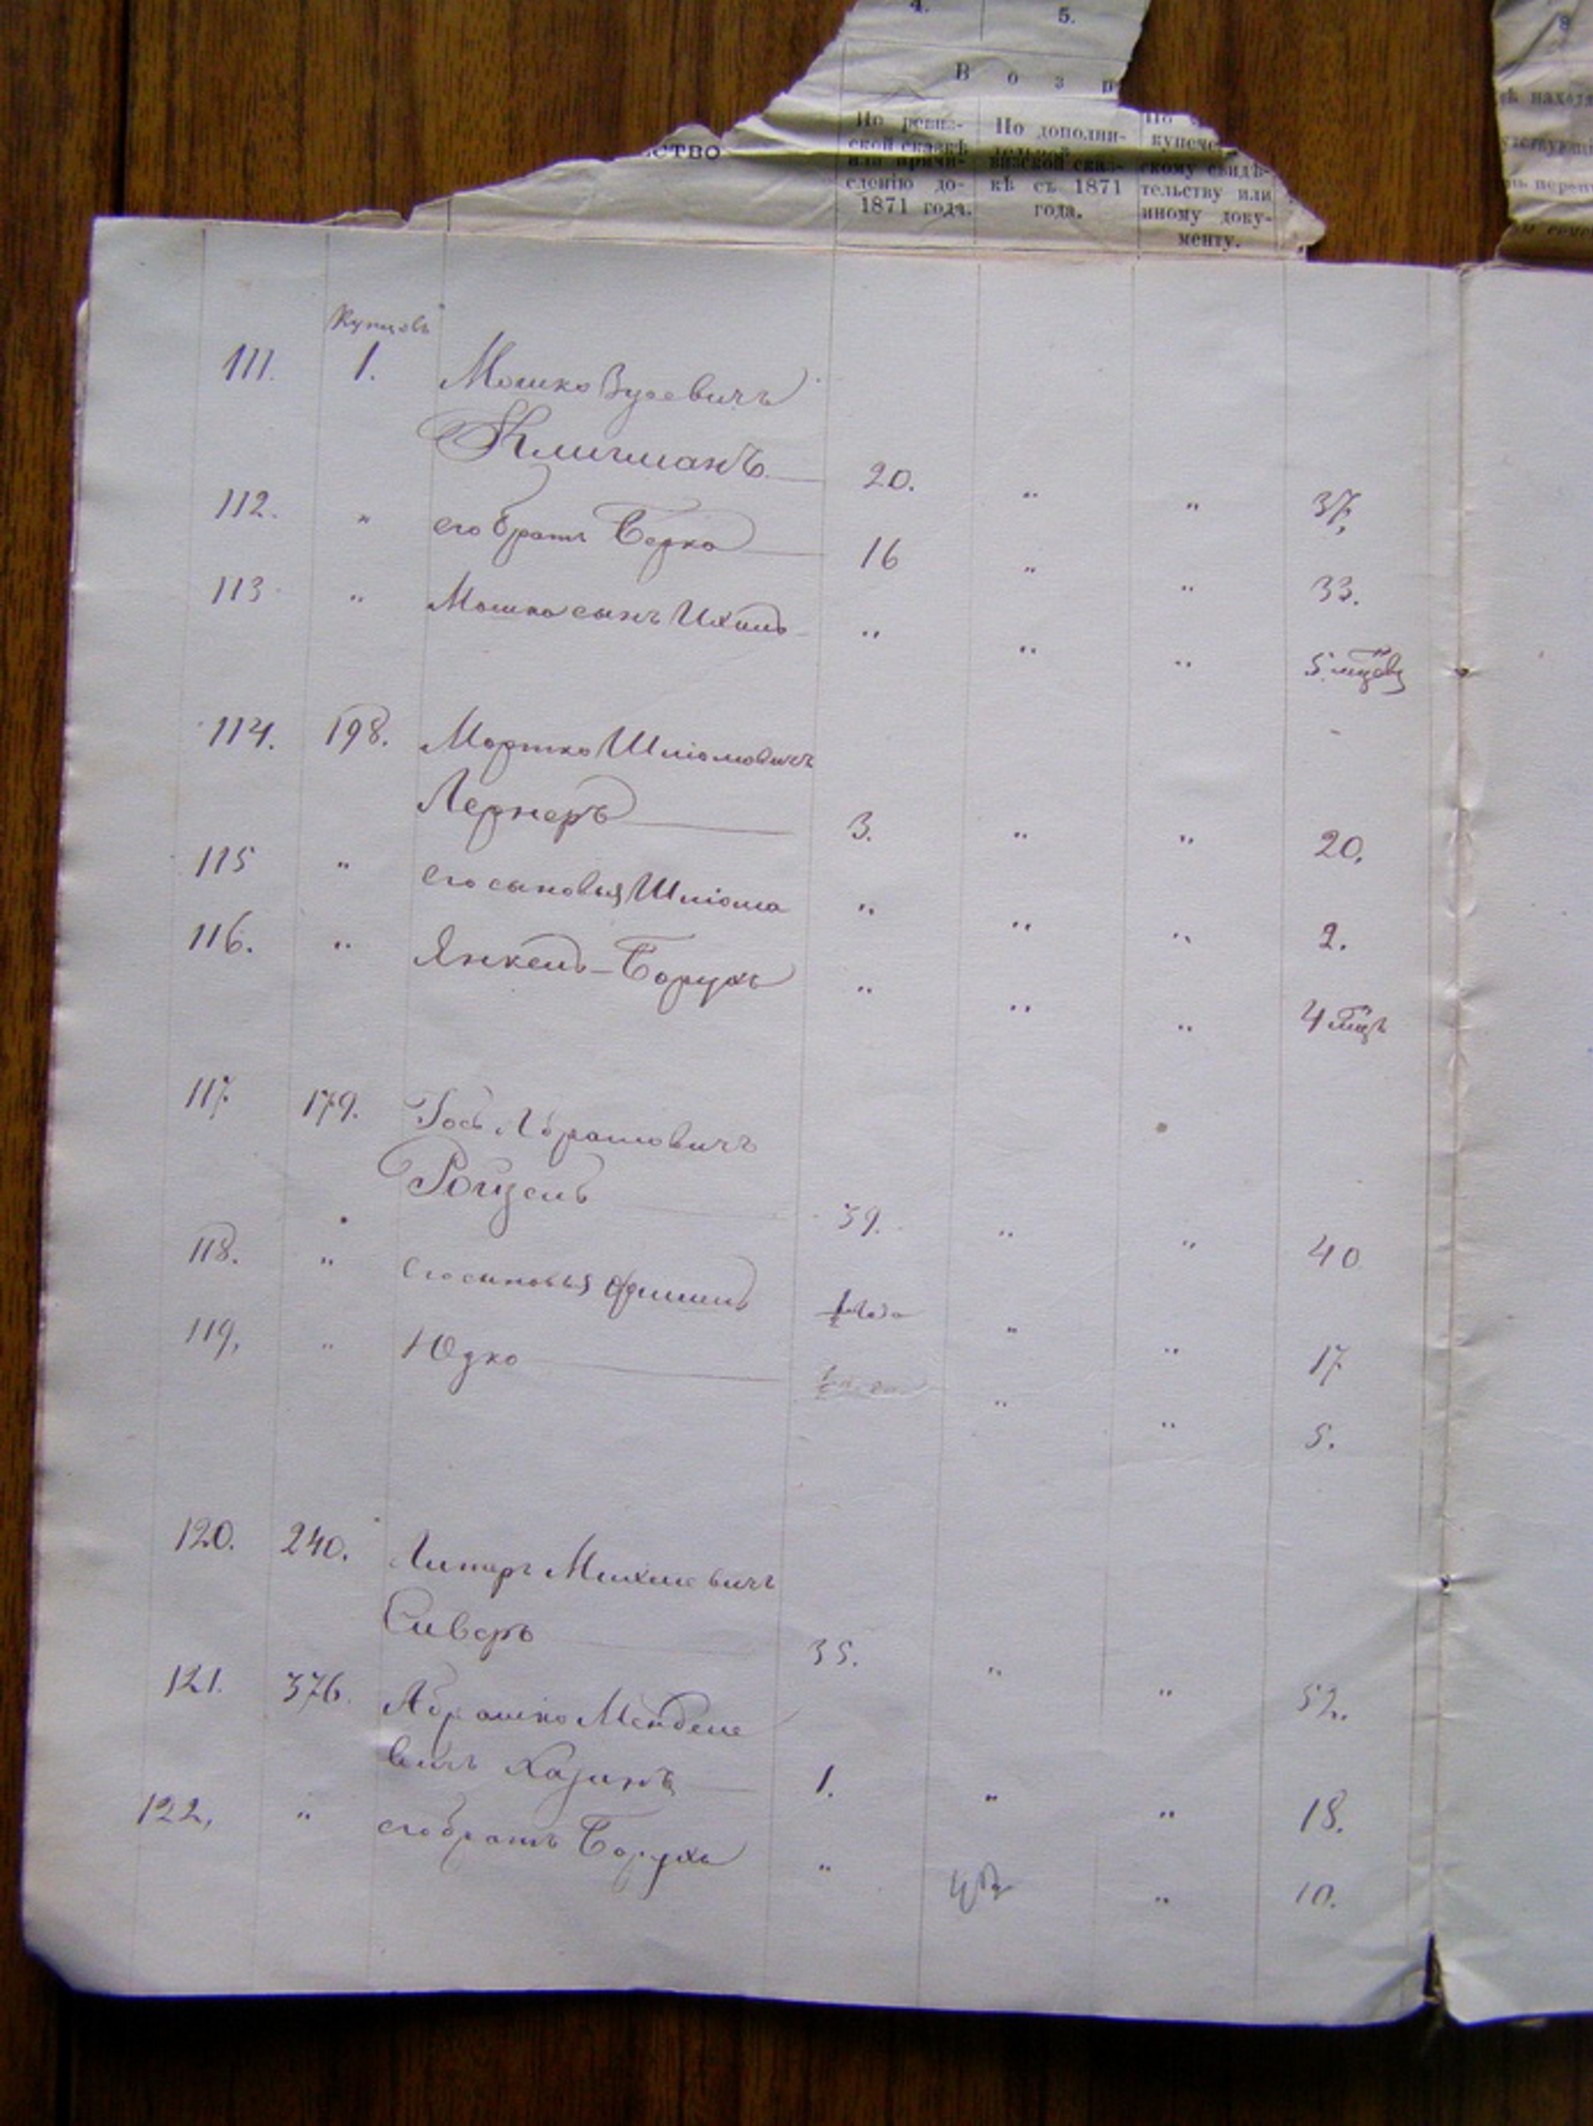 4. 5. 8
В о з р
ство
По ревиз-
ской сказкѣ
или причи-
сленію до-
1871 года.
По дополни-
тельной
визской сказ-
кѣ съ 1871
года.
купече-
скому свидѣ-
тельству или
иному доку-
менту.
Купцовъ
111. 1. Мошко Зусевичъ
Клигманъ 20. " " 37,
112. " его братъ Берко 16 " " 33.
113 " Мошко сынъ Ихиль " " " 5 мѣсяц
114. 198. Мортко Шліомовичъ
Лернеръ 3. " " 20.
115 " его сыновья Шліома " " " 2.
116. " Янкель-Борухъ " " " 4 мѣс
117. 179. Гось Абрамовичъ
Ройзенъ 39. " " 40
118. " его сыновья Фишель ½ года " " 17
119, " Юдко ½ " " 5.
120. 240. Липеръ Михелевичъ
Сиверъ 35. " " 52.
121. 376. Абрашко Мендele
вичъ Хазинъ 1. " " 18.
122, " его братъ Борухъ " " 10.